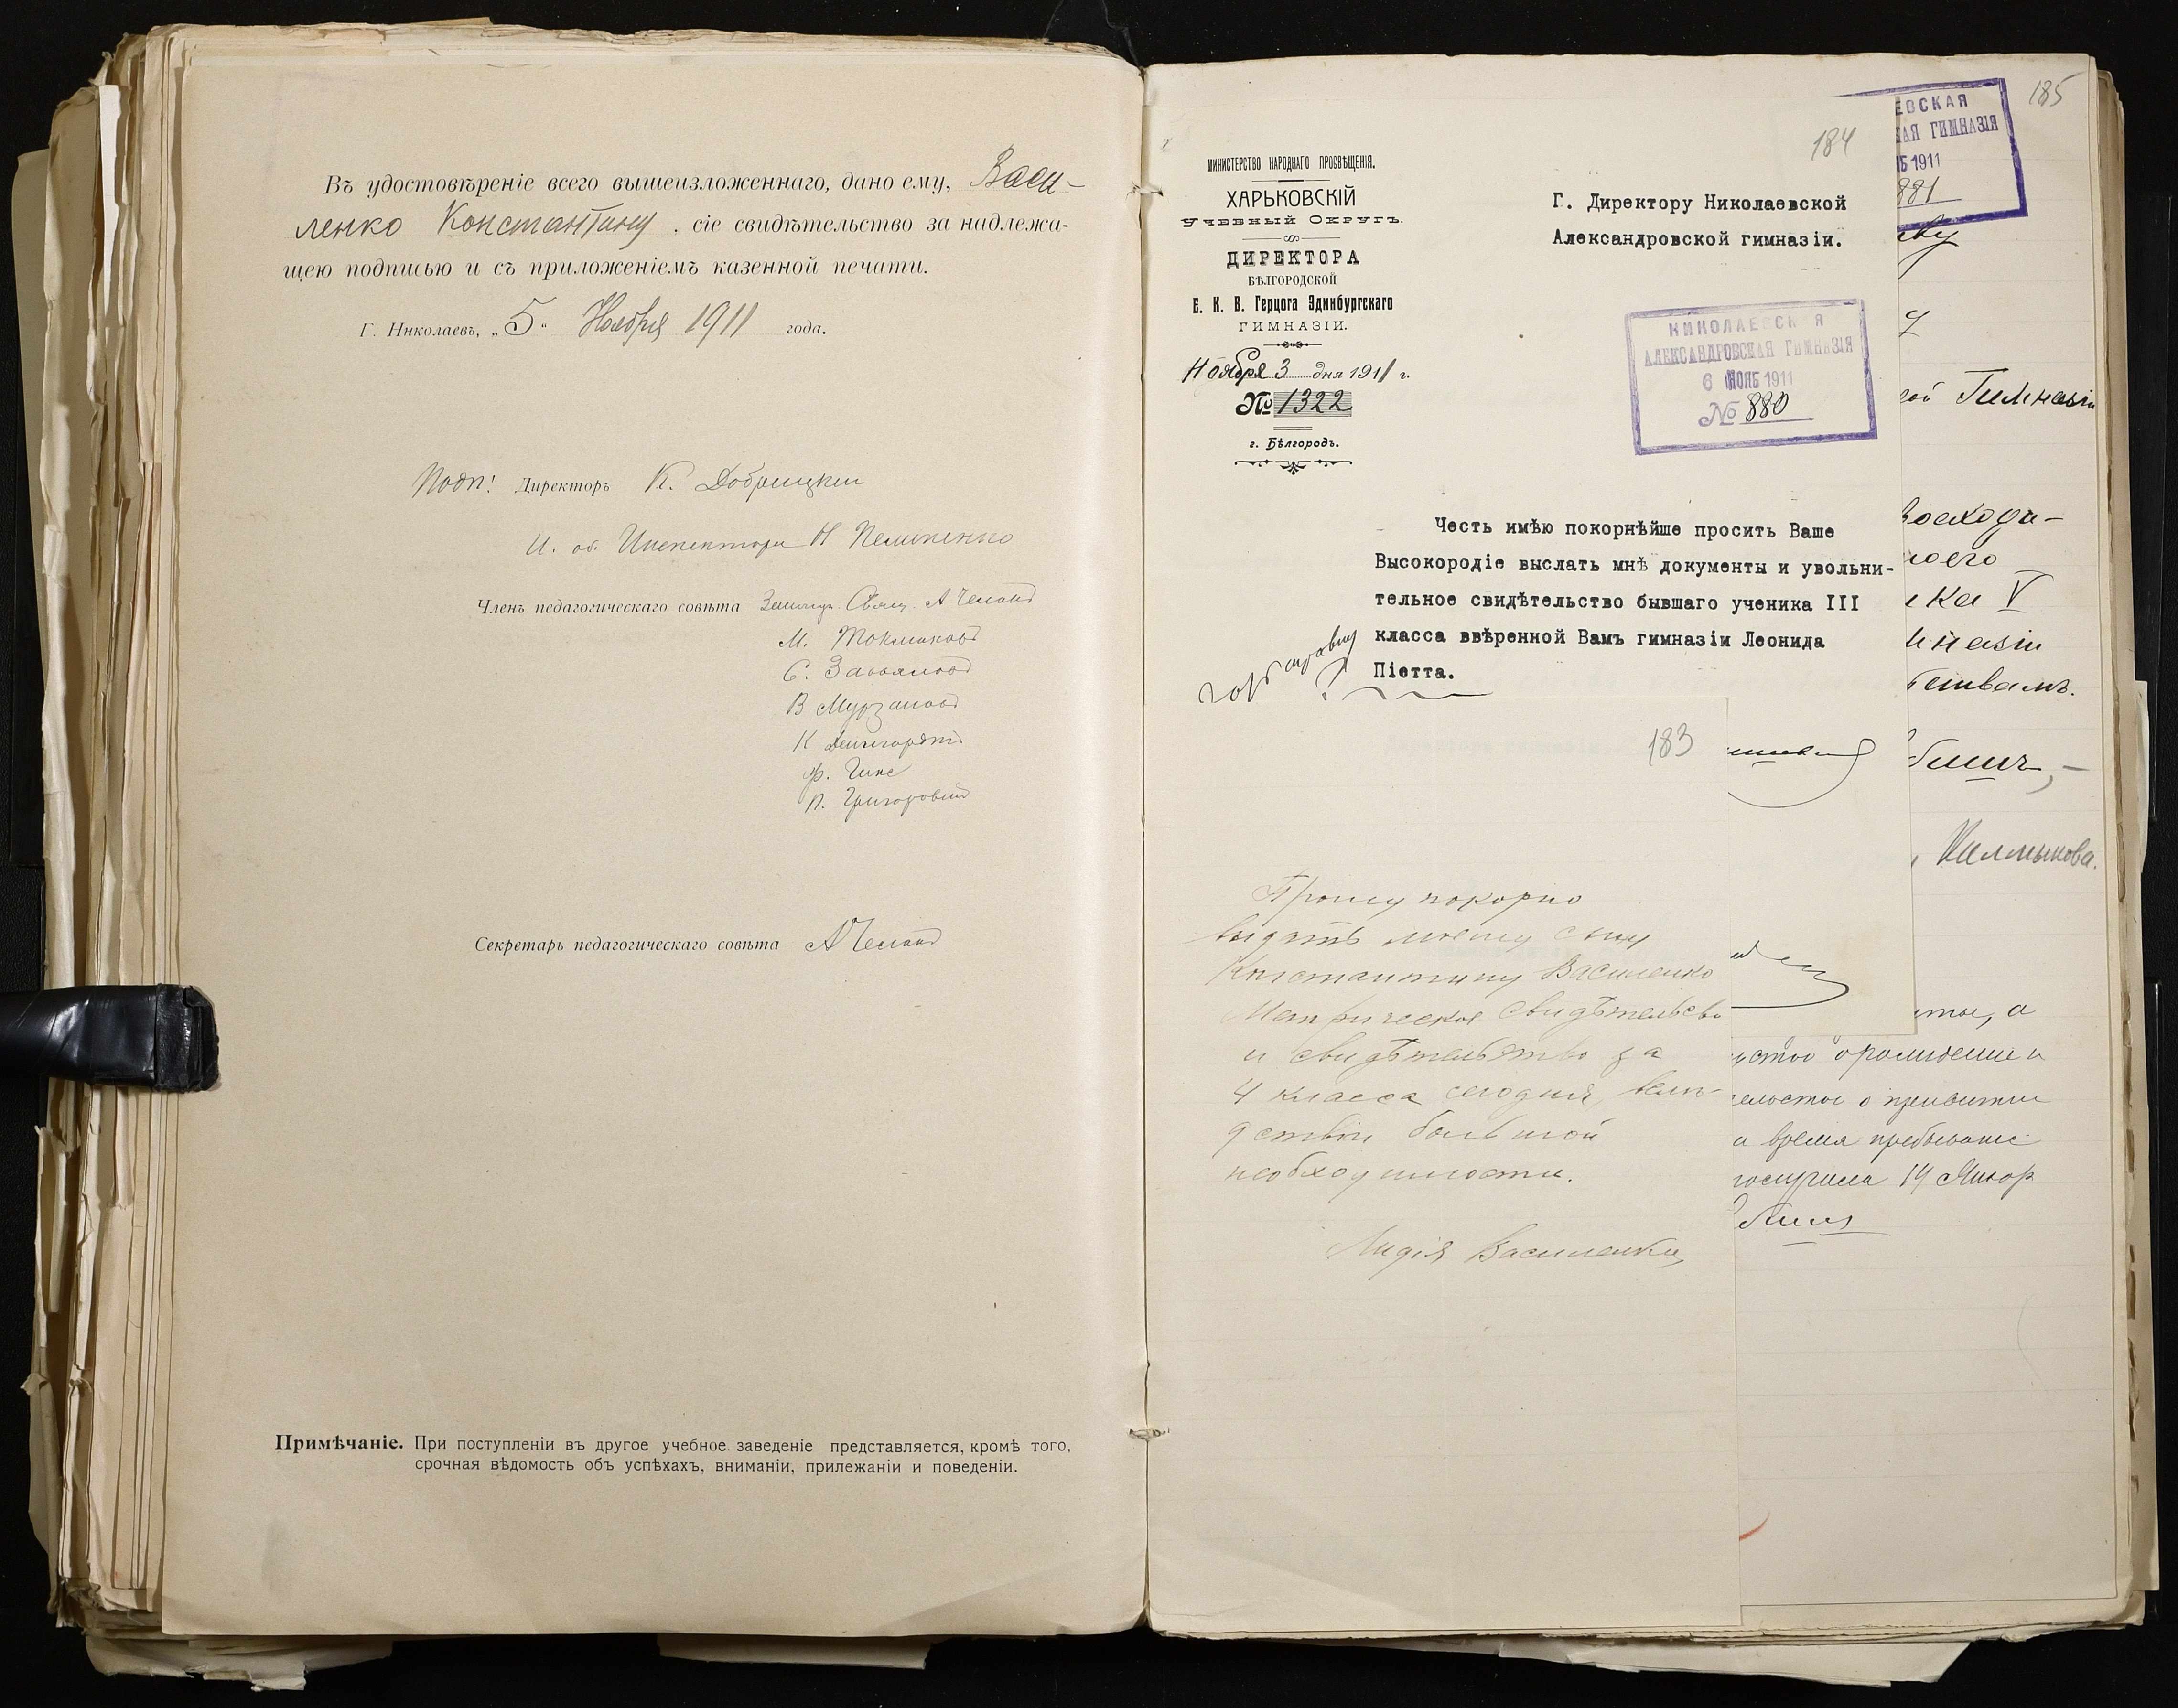 Въ удостовѣреніе всего вышеизложеннаго, дано ему, Васи-
ленко Константину. сіе свидѣтельство за надлежа-
щею подписью и съ приложеніемъ казенной печати.
Г. Николаевъ, „5“ Ноября 1911 года.
Подп: Директоръ К. Добрицкій
И. об. Инспектора Н
Членъ педагогическаго совѣта Законоуч. Свящ. А
М. Токмаковъ
С. Завьяловъ
В Мурзановъ
К
Ф. Гинс
П. Григоровичъ
Секретарь педагогическаго совѣта А
Примѣчаніе. При поступленіи въ другое учебное заведеніе представляется, кромѣ того,
срочная вѣдомость объ успѣхахъ, вниманіи, прилежаніи и поведеніи.
184
МИНИСТЕРСТВО НАРОДНАГО ПРОСВѢЩЕНІЯ.
ХАРЬКОВСКІЙ
УЧЕБНЫЙ ОКРУГЪ.
ДИРЕКТОРА
БѢЛГОРОДСКОЙ
Е. К. В. Герцога Эдинбургскаго
ГИМНАЗІИ.
Ноября 3 дня 1911 г.
№ 1322
г. Бѣлгородъ.
Г. Директору Николаевской
Александровской гимназіи.
НИКОЛАЕВСКАЯ
АЛЕКСАНДРОВСКАЯ ГИМНАЗІЯ
6 НОЯБ 1911
№ 880
Честь имѣю покорнѣйше просить Ваше
Высокородіе выслать мнѣ документы и увольни-
тельное свидѣтельство бывшаго ученика III
класса ввѣренной Вамъ гимназіи Леонида
Піетта.
183
Прошу покорно
выдать моему сыну
Константину Василенко
Метрическое свидѣтельсво
и свидѣтельство за
4 класса сегодня, вслѣ-
дствіи большой
необходимости.
Лидія Василенко
185
ЕВСКАЯ
КАЯ ГИМНАЗІЯ
ЯБ 1911
881
ой Гимназіи
восходи-
моего
ка V
мназіи
Калмыкова.
а
о прививки
а время пребыванія
14 Января